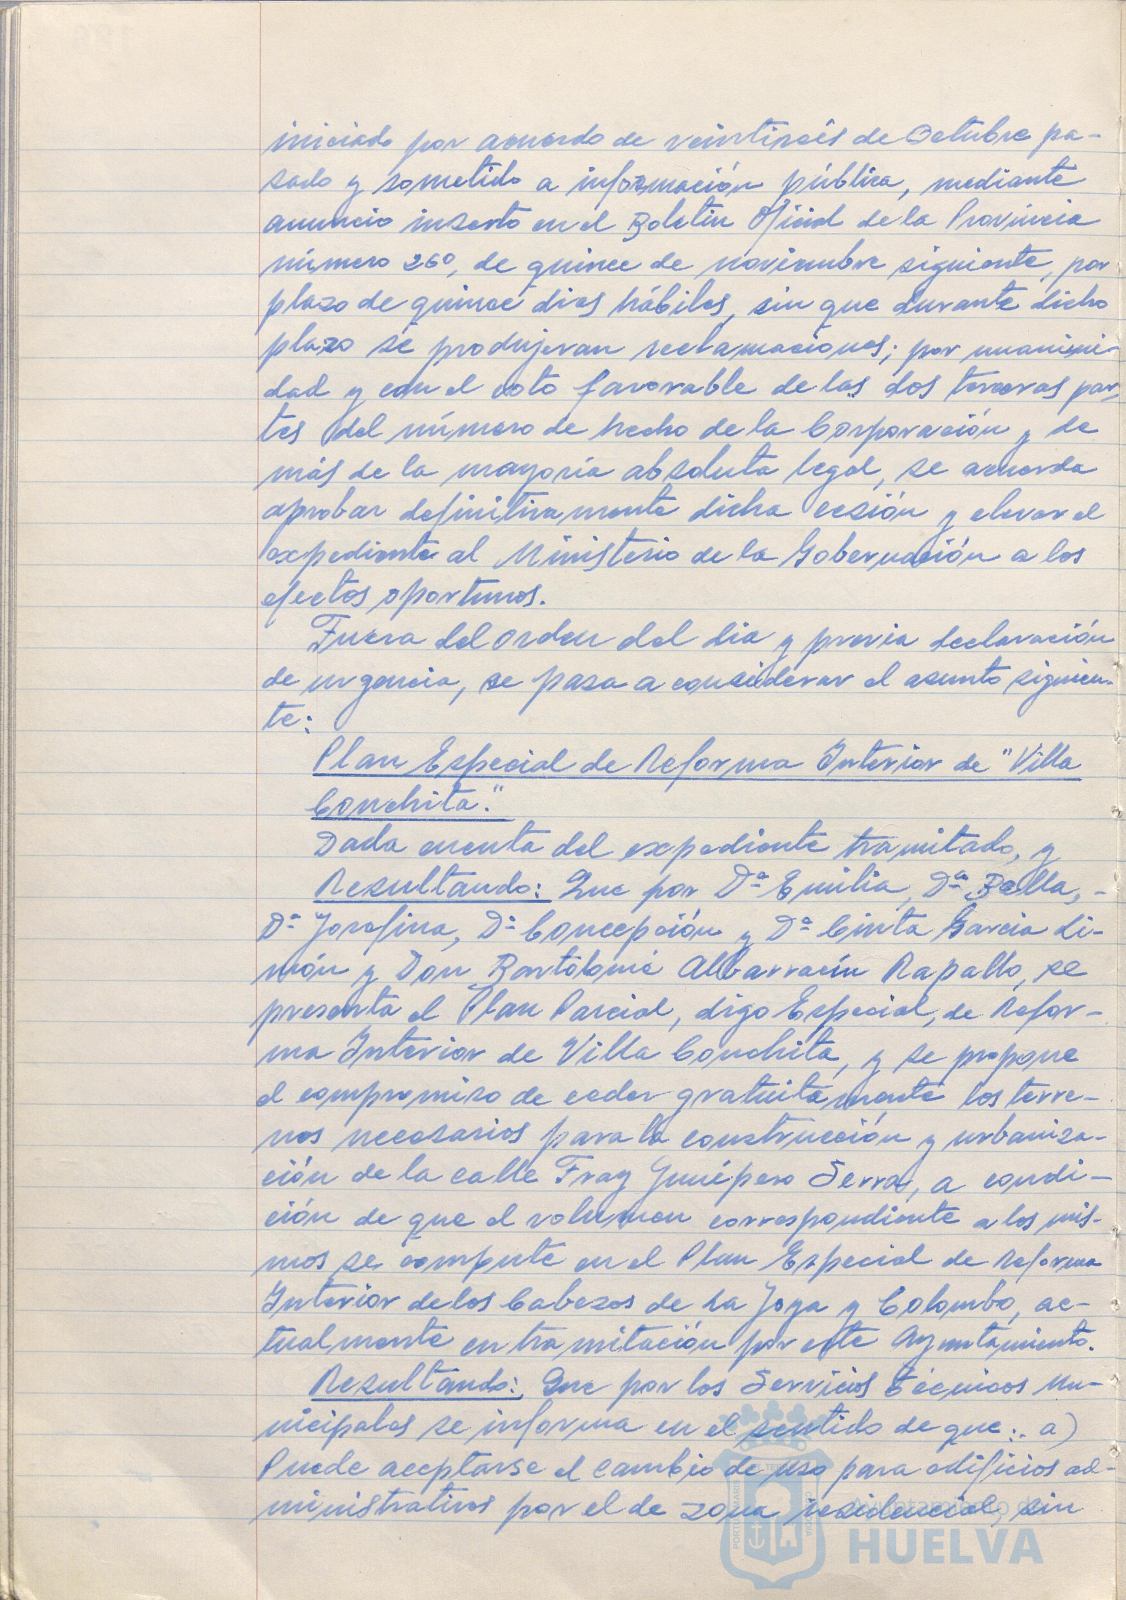 iniciado por acuerdo de veintiséis de Octubre pa-
sado y sometido a información pública, mediante
anuncio inserto en el Boletín Oficial de la Provincia
número 260, de quince de noviembre siguiente, por
plazo de quince días hábiles, sin que durante dicho
plazo se produjeran reclamaciones; por unanimi-
dad y con el voto favorable de las dos terceras par-
tes del número de hecho de la Corporación y de
más de la mayoría absoluta legal, se acuerda
aprobar definitivamente dicha cesión y elevar el
expediente al Ministerio de la Gobernación a los
efectos oportunos.
Fuera del orden del día y previa declaración
de urgencia, se pasa a considerar el asunto siguien-
te:
Plan Especial de Reforma Interior de "Villa
Conchita."
Dada cuenta del expediente tramitado, y
Resultando: Que por Dª Emilia, Dª Bella, -
Dª Josefina, Dª Concepción y Dª Cinta García Li-
món y Don Bartolomé Albarracín Rapallo, se
presenta el Plan Parcial, digo Especial, de Refor-
ma Interior de Villa Conchita, y se propone
el compromiso de ceder gratuitamente los terre-
nos necesarios para la construcción y urbaniza-
ción de la calle Fray Junípero Serra, a condi-
ción de que el volumen correspondiente a los mis-
mos se compute en el Plan Especial de Reforma
Interior de los Cabezos de La Joya y Colombo, ac-
tualmente en tramitación por este Ayuntamiento.
Resultando: Que por los Servicios Técnicos Mu-
nicipales se informa en el sentido de que: a)
Puede aceptarse el cambio de uso para edificios ad-
ministrativos por el de zona residencial, sin
Ayuntamiento de
HUELVA